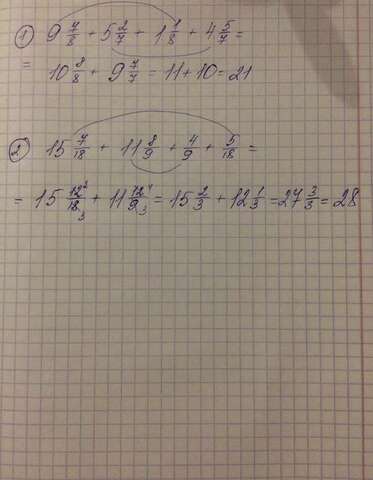 1) 9 7/8 + 5 2/7 + 1 1/8 + 4 5/7 =
= 10 8/8 + 9 7/7 = 11 + 10 = 21
2) 15 7/18 + 11 8/9 + 4/9 + 5/18 =
= 15 12²/18₃ + 11 12⁴/9₃ = 15 2/3 + 12 1/3 = 27 3/3 = 28